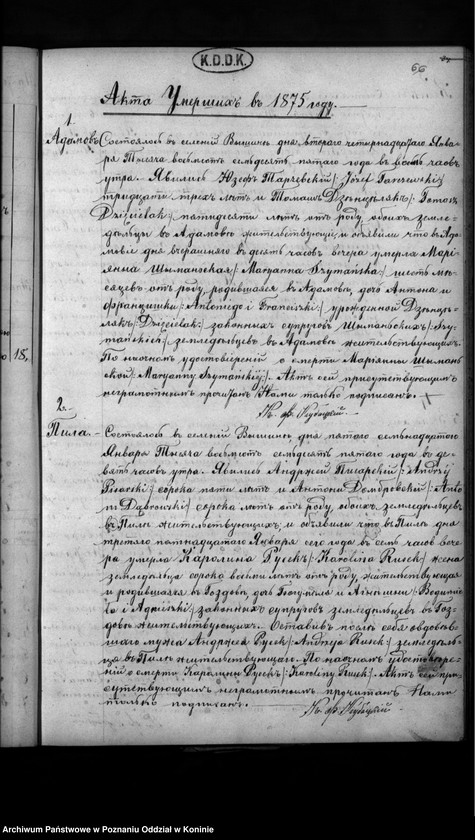 K.D.D.K.
66
Акта Умершихъ въ 1875 году.
1.
Адамовъ
Состоялось въ селеніи Вышинѣ дня втораго четырнадцатаго Янва-
ря Тысяча восемьсотъ семьдесятъ пятаго года въ восемь часовъ
утра. Явились Юзефъ Таржевскій /: Józef Tarzewski :/
тридцати трехъ лѣтъ и Томашъ Дзенцѣлякъ /: Tomasz
Dzięcielak :/ пятидесяти лѣтъ отъ роду, обоихъ земле-
дѣльцы въ Адамовѣ жительствующіи, и объявили что въ Ада-
мовѣ дня вчерашняго въ десять часовъ вечера умерла Марі-
янна Шыманская /: Maryanna Szymańska :/ шесть мѣ-
сяцевъ отъ роду, родившаяся въ Адамовѣ, дочь Антона и
Францишки /: Antoniego i Franciszki :/ урожденной Дзенцѣ-
лякъ /: Dzięcielak :/ законныхъ супруговъ Шыманскихъ /: Szy-
mańskich :/ земледѣльцевъ въ Адамовѣ жительствующихъ.
По личномъ удостовѣреніи о смерти Маріянны Шыман-
ской /: Maryanny Szymańskiej :/. Актъ сей присутствующимъ
неграмотнымъ прочитанъ Нами только подписанъ.
Кс. Ф.
2.
Пила.
Состоялось въ селеніи Вышинѣ дня пятаго семнадцатаго
Января Тысяча восемьсотъ семьдесятъ пятаго года въ де-
вять часовъ утра. Явились Андржей Писарскій /: Andrzej
Pisarski :/ сорока пяти лѣтъ и Антони Домбровскій /: Anto-
ni Dąbrowski :/ сорока лѣтъ отъ роду, обоихъ земледѣльцевъ
въ Пилѣ жительствующихъ, и объявили что въ Пилѣ дня
третяго пятнадцатаго Января сего года въ семь часовъ вече-
ра умерла Каролина Русекъ /: Karolina Rusek :/ жена
земледѣльца сорока восьми лѣтъ отъ роду, жительствующая
и родившаяся въ Гоздовѣ, дочь и
i Agnieszki :/ законныхъ супруговъ земледѣльцевъ въ Гоз-
довѣ жительствующихъ. Оставивъ послѣ себя овдовѣв-
шаго мужа Андржея Русекъ /: Andrzeja Rusek :/ земледѣль-
ца въ Пилѣ жительствующаго. По личномъ удостовѣре-
ніи о смерти Каролины Русекъ /: Karoliny Rusek :/. Актъ сей при-
сутствующимъ неграмотнымъ прочитанъ Нами
только подписанъ.
Кс. Ф.
18,
Archiwum Państwowe w Poznaniu Oddział w Koninie